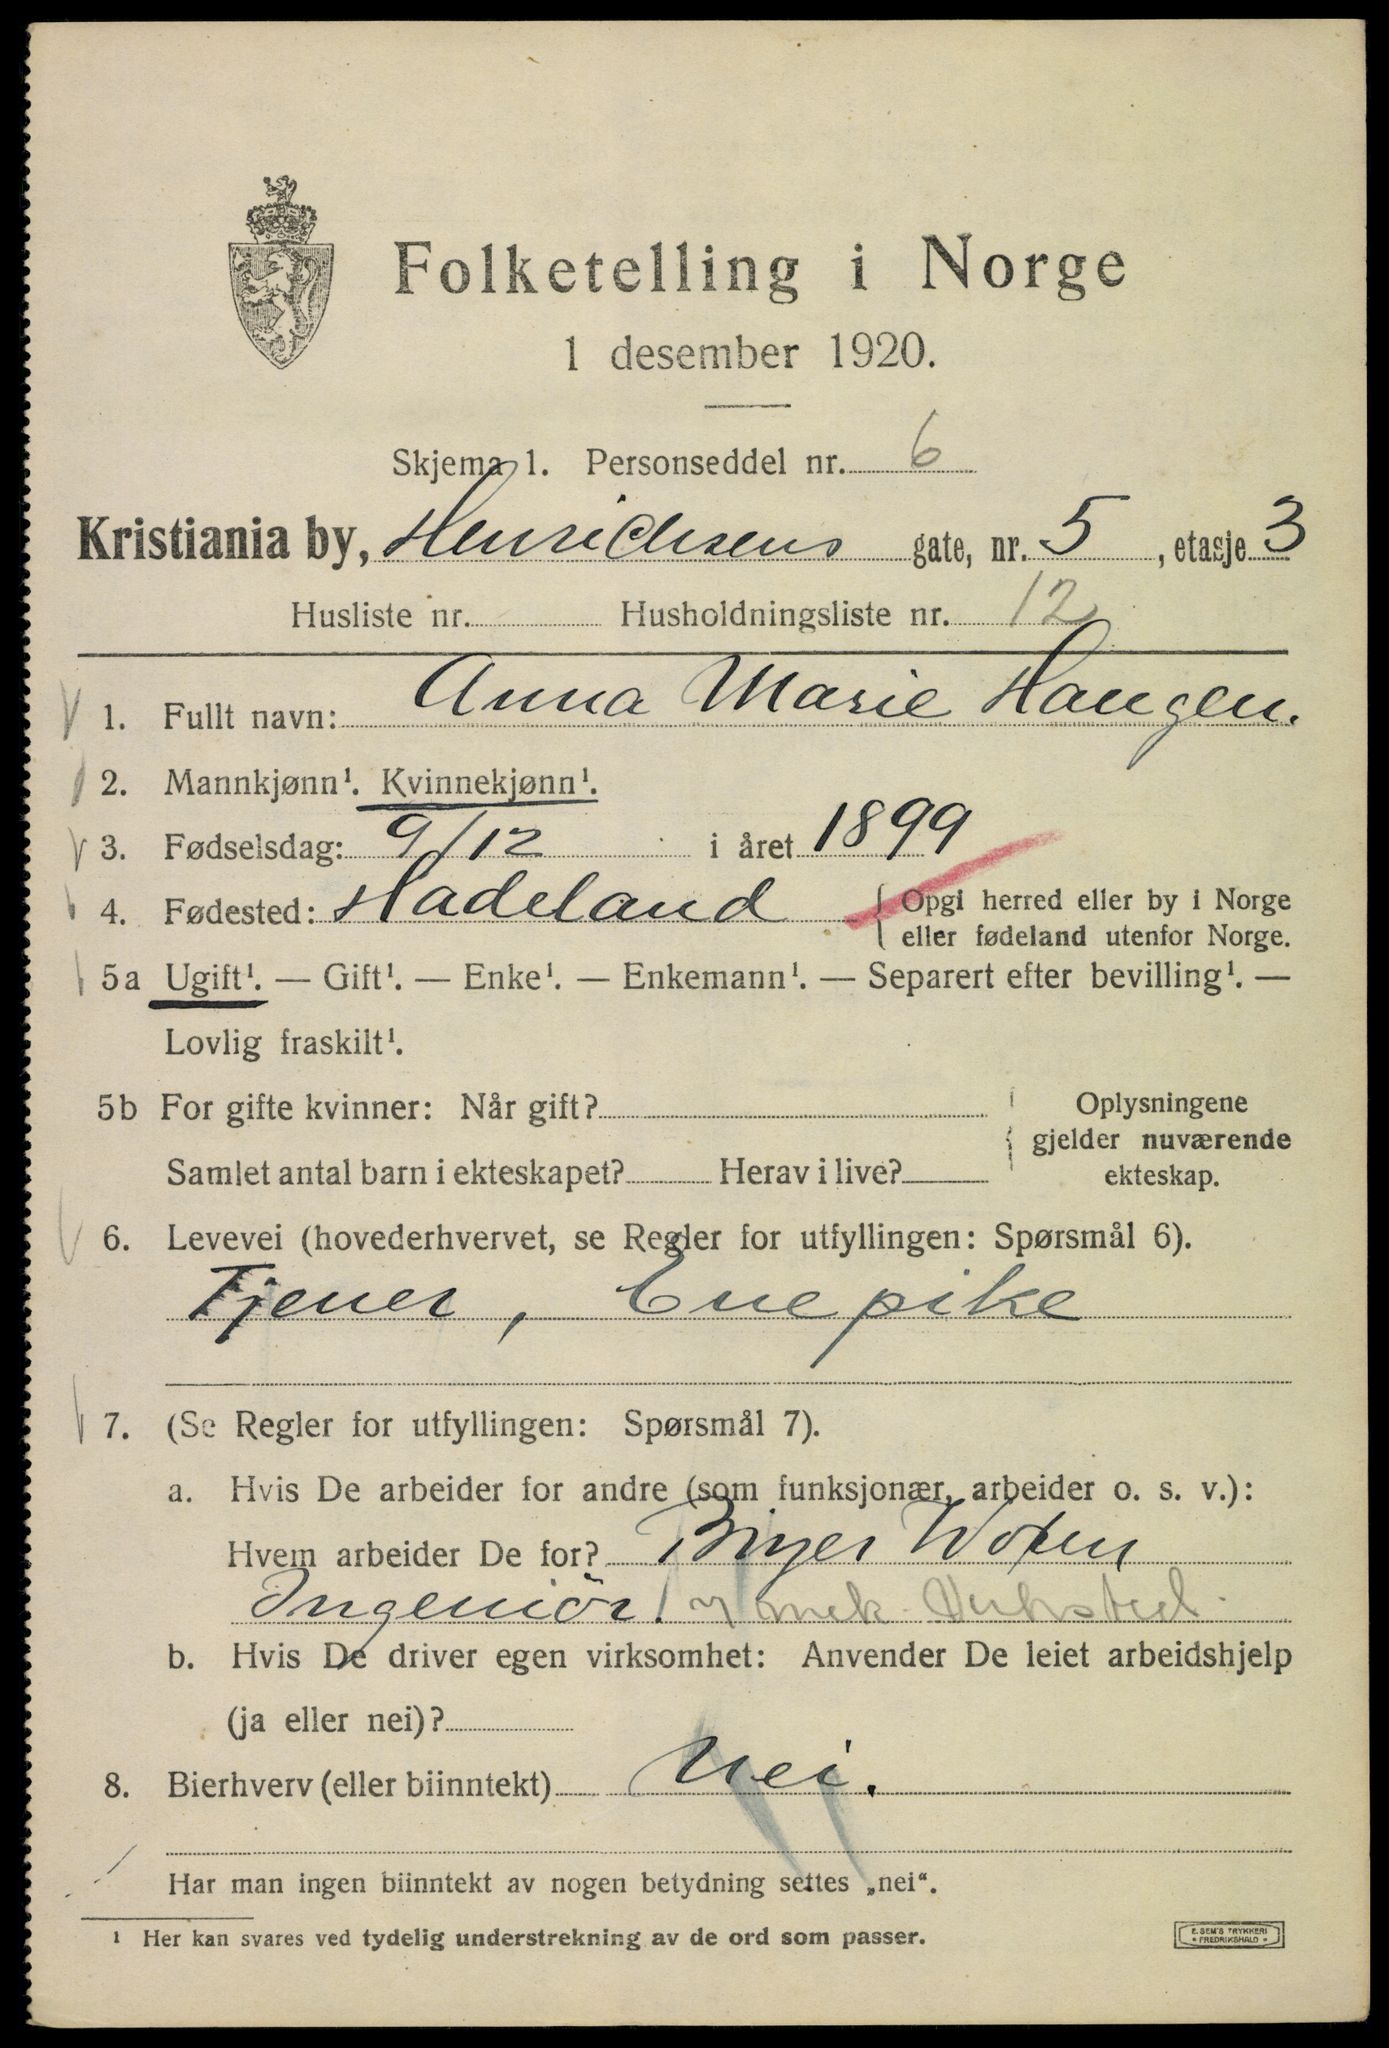 Folketelling i Norge
1 desember 1920.
Skjema 1. Personseddel nr. 6
Kristiania by, Henrichsens gate, nr. 5, etasje 3
Husliste nr. Husholdningsliste nr. 12
1. Fullt navn: Anna Marie Haugen.
2. Mannkjønn¹. Kvinnekjønn¹.
3. Fødselsdag: 9/12 i året 1899
4. Fødested: Hadeland { Opgi herred eller by i Norge
eller fødeland utenfor Norge.
5a Ugift¹. — Gift¹. — Enke¹. — Enkemann¹. — Separert efter bevilling¹. —
Lovlig fraskilt¹.
5b For gifte kvinner: Når gift? { Oplysningene
gjelder nuværende
Samlet antal barn i ekteskapet? Herav i live? ekteskap.
6. Levevei (hovederhvervet, se Regler for utfyllingen: Spørsmål 6).
Tjener, Enepike
7. (Se Regler for utfyllingen: Spørsmål 7).
a. Hvis De arbeider for andre (som funksjonær, arbeider o. s. v.):
Hvem arbeider De for? Birger
Ingeniör. mek. Verksted.
b. Hvis De driver egen virksomhet: Anvender De leiet arbeidshjelp
(ja eller nei)?
8. Bierhverv (eller biinntekt) Nei.
Har man ingen biinntekt av nogen betydning settes „nei“.
¹ Her kan svares ved tydelig understrekning av de ord som passer.
E. SEM'S TRYKKERI
* FREDRIKSHALD *